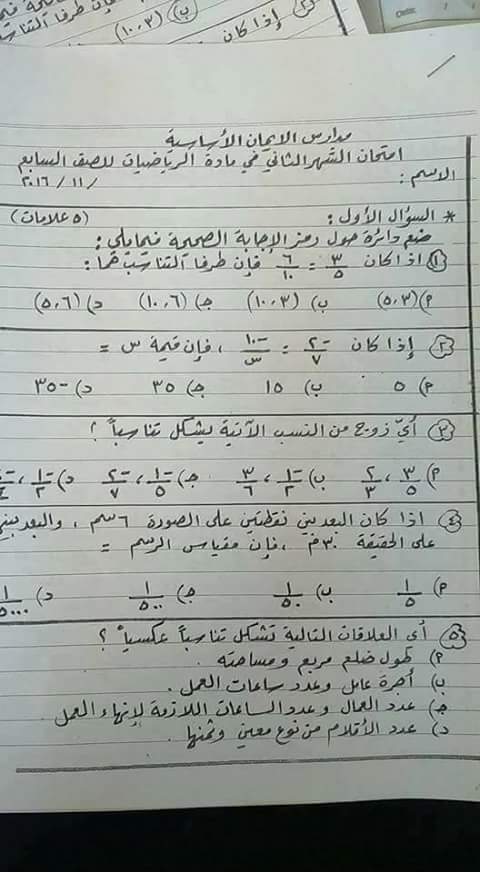 إذا كان
ب) (١٠،٣)
مدارس الإيمان الأساسية
امتحان الشهر الثاني في مادة الرياضيات للصف السابع
الاسم : / ١١ / ٢٠١٦
* السؤال الأول : (٥ علامات)
ضع دائرة حول رمز الإجابة الصحيحة فيما يلي :
١) اذا كان ٣/٥ = ٦/١٠ فإن طرفا التناسب هما :
٢) (٥،٣) ب) (١٠،٣) ج) (١٠،٦) د) (٥،٦)
٢) إذا كان -٢/٧ = -١٠/س ، فإن قيمة س =
٢) ٥ ب) ١٥ ج) ٣٥ د) -٣٥
٣) أيّ زوج من النسب الآتية يشكل تناسباً ؟
٢) ٣/٥ ، ٢/٣ ب) -١/٢ ، ٣/٦ ج) -١/٥ ، -٢/٧ د) -١/٢ ،
٤) اذا كان البعد بين نقطتين على الصورة ٦سم ، والبعد بينهما
على الحقيقة ٣٠م ، فإن مقياس الرسم =
٢) ١/٥ ب) ١/٥٠ ج) ١/٥٠٠ د) ١/٥٠٠٠
٥) أي العلاقات التالية تشكل تناسباً عكسياً ؟
٢) طول ضلع مربع ومساحته .
ب) أجرة عامل وعدد ساعات العمل .
ج) عدد العمال وعدد الساعات اللازمة لإنهاء العمل .
د) عدد الأقلام من نوع معين وثمنها .